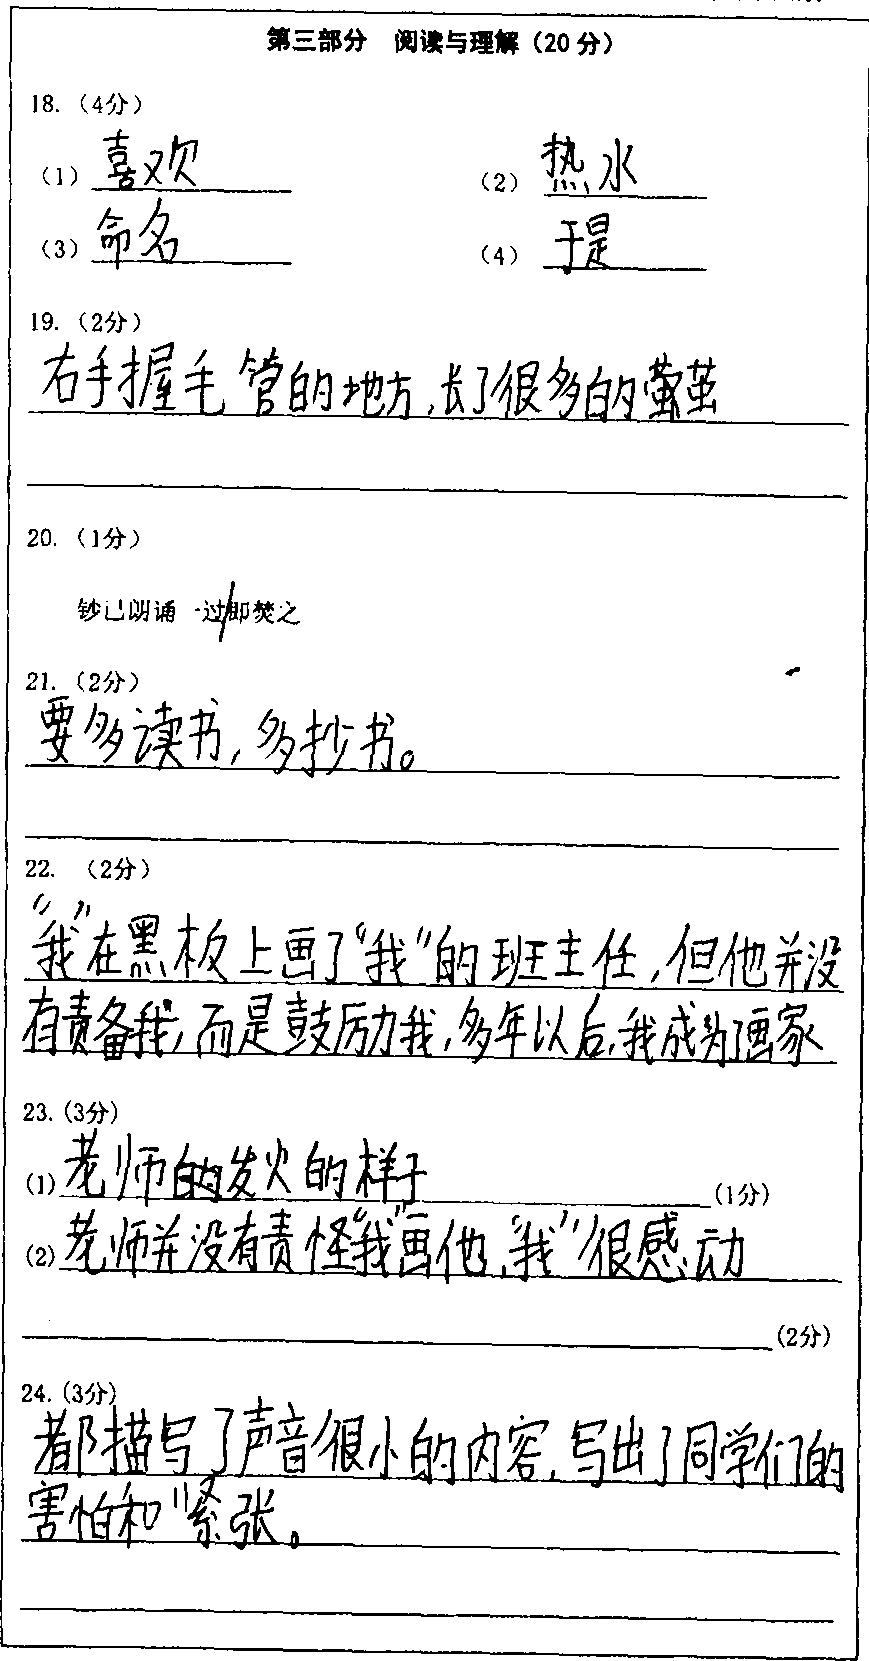 第三部分 阅读与理解（20分）
18.（4分）
（1）喜欢 （2）热水
（3）命名 （4）于是
19.（2分）
右手握毛管的地方,长了很多的茧
20.（1分）
钞已朗诵一过/即焚之
21.（2分）
要多读书,多抄书。
22.（2分）
“我”在黑板上画了“我”的班主任,但他并没
有责备我,而是鼓厉力我,多年以后,我成为了画家
23.(3分)
(1)老师的发火的样子(1分)
(2)老师并没有责怪“我”画他,“我”很感动
(2分)
24.(3分)
都描写了声音很小的内容,写出了同学们的
害怕和紧张。